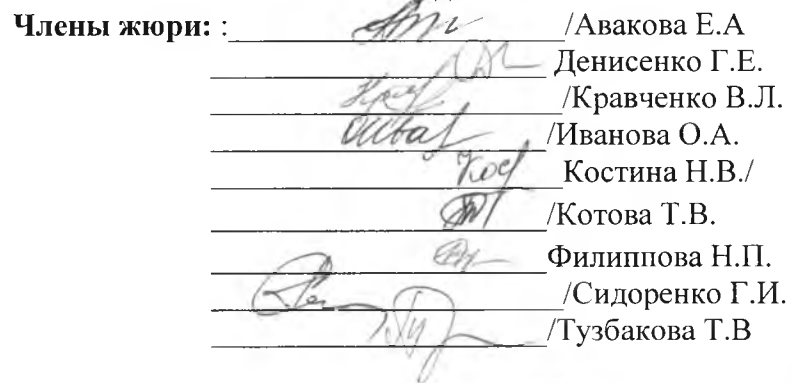 Члены жюри: : /Авакова Е.А
Денисенко Г.Е.
/Кравченко В.Л.
/Иванова О.А.
Костина Н.В./
/Котова Т.В.
Филиппова Н.П.
/Сидоренко Г.И.
/Тузбакова Т.В